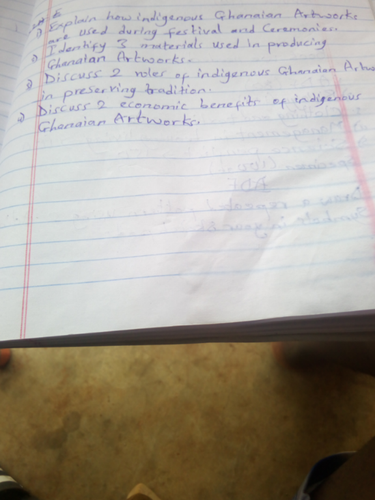 1) Explain how indigenous Ghanaian Artworks
are used during festival and Ceremonies.
2) Identify 3 materials used in producing
Ghanaian Artworks.
Discuss 2 roles of indigenous Ghanaian
in preserving tradition.
Discuss 2 economic benefits of indigenous
Ghanaian Artworks.